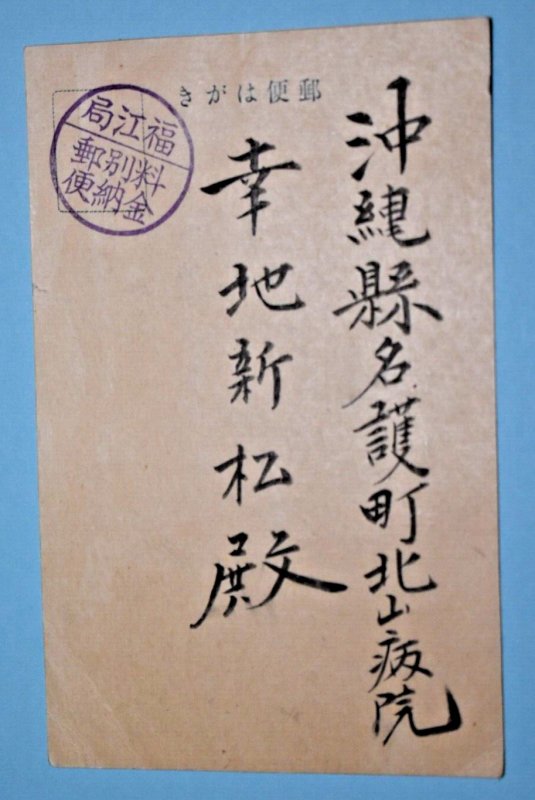 郵便はがき
沖縄縣名護町北山病院
幸地新松殿
福江局
料金別納郵便